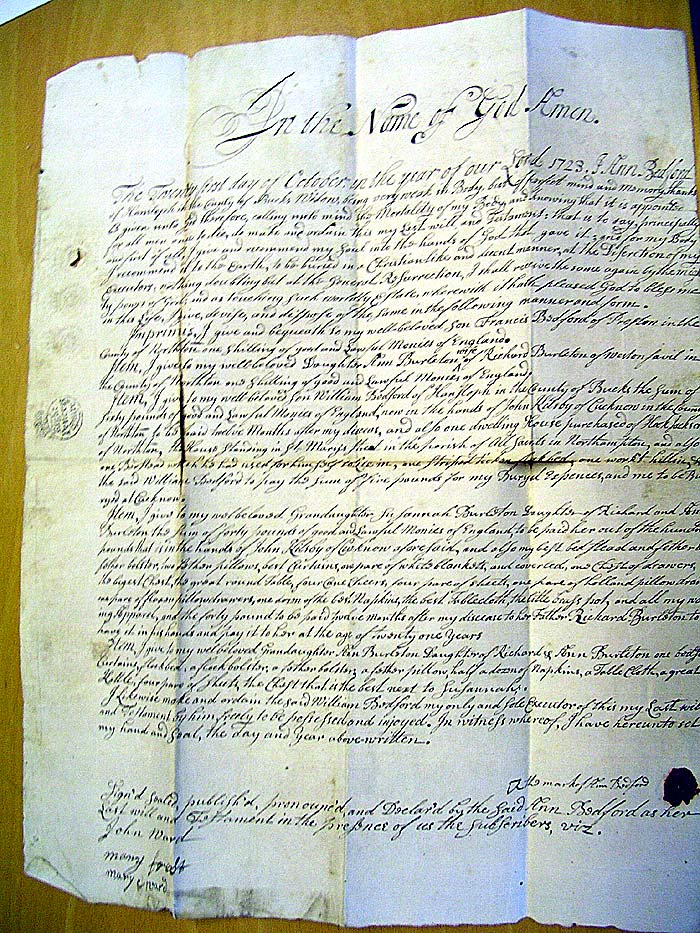 In the Name of God Amen.
The Twenty first day of October in the year of our Lord 1723. I Ann Bedford
of Hanslop in the County of Bucks Widow, being very weak in Body, but of perfect mind and memory, thanks
be given unto God therefore, calling unto mind the Mortality of my Body, and knowing that it is appointed
for all men once to die, do make and ordain this my Last will and Testament; that is to say, principally
and first of all, I give and recommend my Soul into the hands of God that gave it; and for my Body
I recommend it to the Earth, to be buried in a Christian like and decent manner, at the Discretion of my
Executors, nothing doubting but at the General Resurrection, I shall receive the same again by the migh
ty power of God; and as touching such worldly Estate, wherewith it hath pleased God to bless me
in this Life, I give, devise, and dispose of the same in the following manner and form.
Imprimis, I give and bequeath to my well-beloved Son Francis Bedford of in the
County of Northton one Shilling of good and Lawful Monies of England.
Item, I give to my well beloved Daughter Ann Burleton wife of Richard Burleton of Weston favil in
the County of Northton one Shilling of good and Lawful Monies of England.
Item, I give to my well-beloved Son William Bedford of Hanslop in the County of Bucks the Sum of
pounds of good and Lawful Monies of England, now in the hands of John Kilsoy of Cucknow in the County
of Northton, to be paid twelve Months after my deceas, and also one dwelling House purchased of Jackson
of Northton, House Standing in St Marys in the parish of All Saints in Northampton, and also
one Bedstead which he had used for himself to lie in, one one
the said William Bedford to pay the Sum of five pounds for my Buryal Expences, and me to be Bu
ryed at Cucknow.
Item, I give to my well beloved Grandaughter Susannah Burleton Daughter of Richard and Ann
Burleton the Sum of forty pounds of good and Lawful Monies of England, to be paid her out of the hundred
pounds that is in the hands of John Kilsoy of Cucknow aforesaid, and also my best bedstead and fether
fether bolster, fether pillows, best Curtains, one pare of white blankets, and coverled, one Chest of drawers,
the bigest Chest, the great round table, four Cane Cheers, four pare of sheets, one pare of holland pillowdrawers
one pare of flaxen pillowdrawers, one dozen of the best Napkins, the best Tablecloth, the little brass pot, and all my wa
ing Apparel, and the forty pound to be paid twelve months after my disease to her Father Richard Burleton to
have it in his hands and pay it to her at the age of Twenty one Years
Item, I give to my well beloved Grandaughter Ann Burleton Daughter of Richard & Ann Burleton one bedstead
Curtains, flockbed, a flock bolster, a fether bolster, a fether pillow, half a dozen of Napkins, a Table Cloth, a great
Kettle, four pare of sheets, the Chest that is the best next to Susannahs.
I Likewise make and ordain the said William Bedford my only and sole Executor of this my Last will
and Testament by him freely to be possessed and injoyed. In witness whereof, I have hereunto set
my hand and Seal, the day and Year above-written.
the mark of Ann Bedford
Sign'd, sealed, publish'd, pronounced, and Declar'd by the said Ann Bedford as her
Last will and Testament in the presence of us the Subscribers, viz.
John Ward
mary frost
mary ward